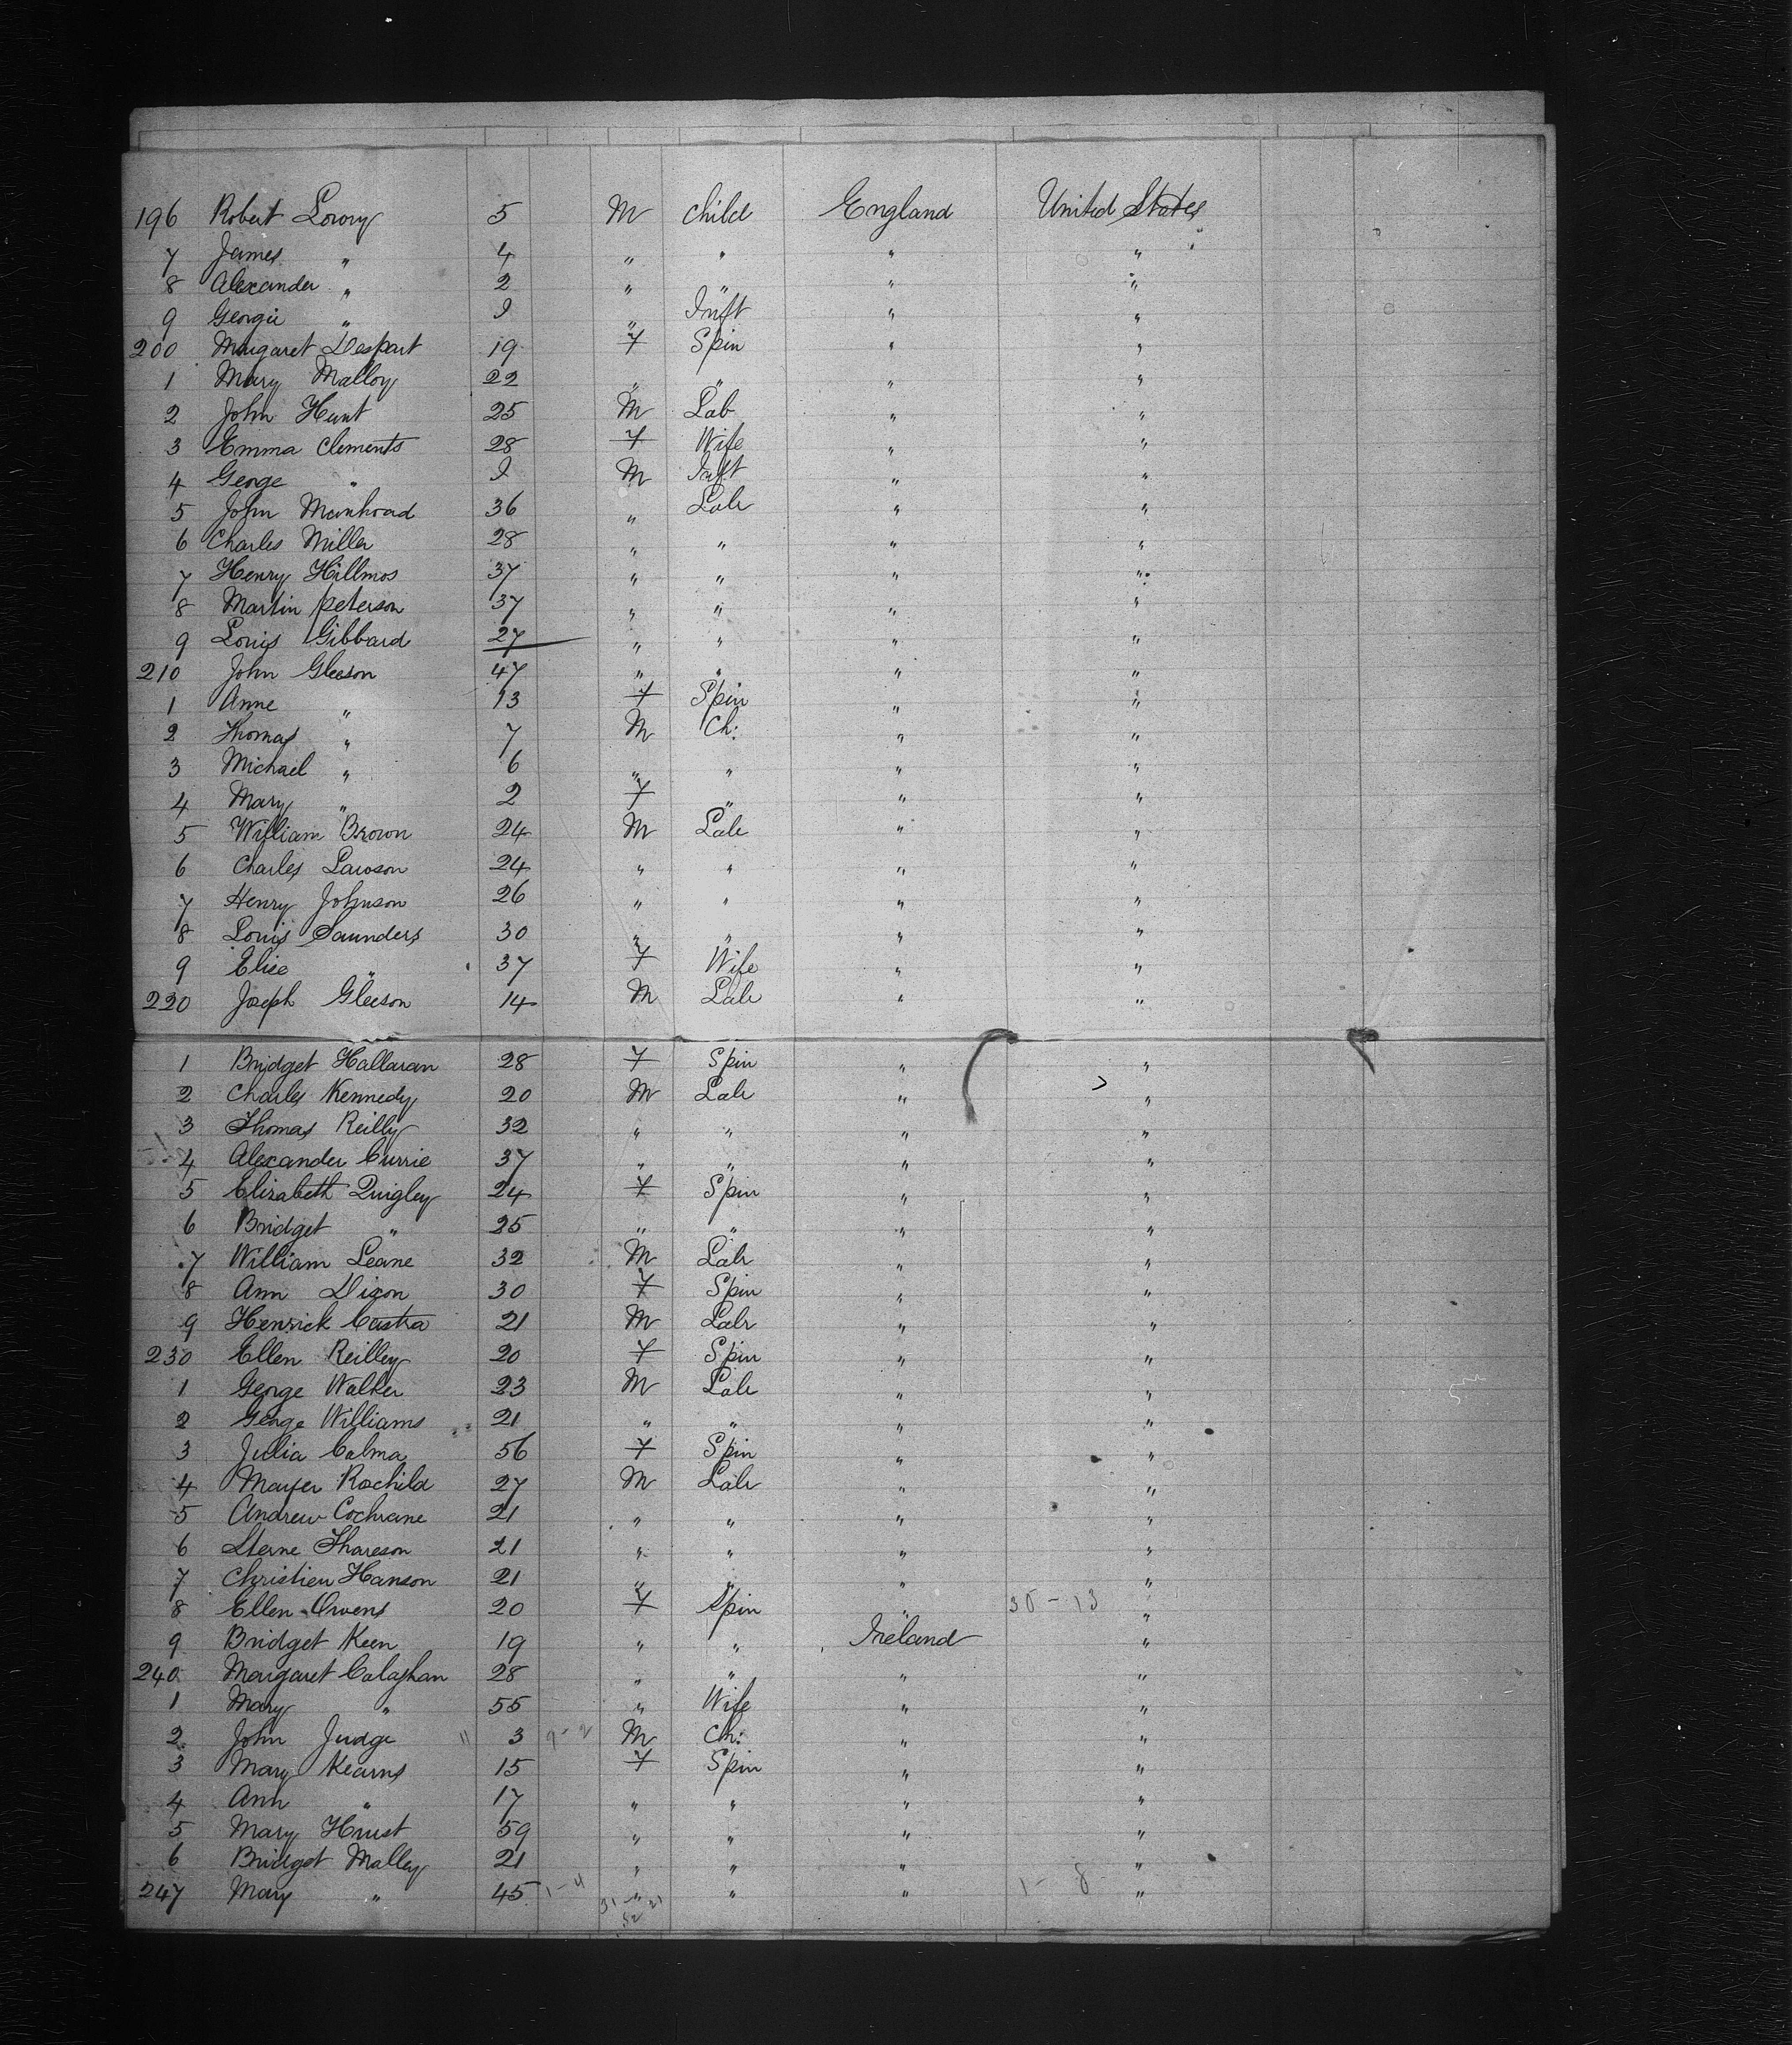 196 Robert Lowry 5 M child England United States
7 James " 4 " " " "
8 Alexander " 2 " " " "
9 Georgie " I " Inft " "
200 Margaret Despart 19 F Spin " "
1 Mary Malloy 22 " " " "
2 John Hunt 25 M Lab " "
3 Emma Clements 28 F Wife " "
4 George " I M Inft " "
5 John 36 " Labr " "
6 Charles Miller 28 " " " "
7 Henry Hillmos 37 " " " "
8 Martin Peterson 37 " " " "
9 Louis Gibbard 27 " " " "
210 John Gleeson 47 " " " "
1 Anne " 13 F Spin " "
2 Thomas " 7 M Ch: " "
3 Michael " 6 " " " "
4 Mary " 2 F " " "
5 William Brown 24 M Labr " "
6 Charles Lawson 24 " " " "
7 Henry Johnson 26 " " " "
8 Louis Saunders 30 " " " "
9 Elise " 37 F Wife " "
220 Joseph Gleeson 14 M Labr " "
1 Bridget Hallaran 28 F Spin " "
2 Charles Kennedy 20 M Labr " "
3 Thomas Reilly 32 " " " "
4 Alexander Currie 37 " " " "
5 Elizabeth Quigley 24 F Spin " "
6 Bridget " 25 " " " "
7 William Leane 32 M Labr " "
8 Ann Dixon 30 F Spin " "
9 Henrick Castra 21 M Labr " "
230 Ellen Reilley 20 F Spin " "
1 George Walker 23 M Labr " "
2 George Williams 21 " " " "
3 Julia Calma 56 F Spin " "
4 Mayer Rochild 27 M Labr " "
5 Andrew Cochrane 21 " " " "
6 Sterne Thareson 21 " " " "
7 Christien Hanson 21 " " " "
8 Ellen Owens 20 F Spin " 30 - 13 "
9 Bridget Keen 19 " " Ireland "
240 Margaret Calaghan 28 " " " "
1 Mary " 55 " Wife " "
2 John Judge " 3 9-2 M Ch: " "
3 Mary Kearns 15 F Spin " "
4 Ann " 17 " " " "
5 Mary Hurst 59 " " " "
6 Bridget Malley 21 " " " "
247 Mary " 45 1-4 " " " 1- 8 "
31 - 21
52